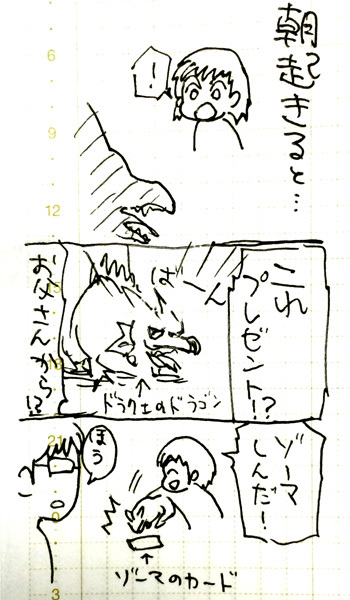 朝起きると…
!
これ
プレゼント!?
ばーん
お父さんから!?
ドラクエのドラゴン
ゾーマ
しんだ!
ほう
ゾーマのカード
6
9
12
15
18
21
0
3